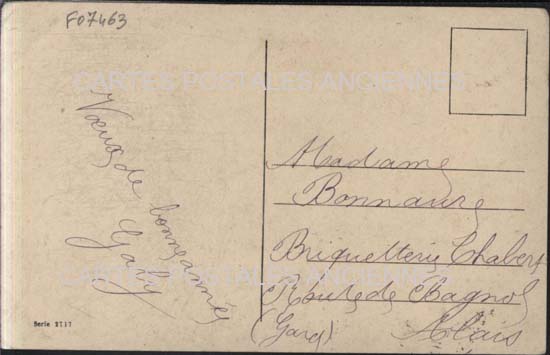 F07463
CARTES POSTALES ANCIENNES
Vœux de bonne année
Gaby
Madame
Bonnaure
Briquetterie Chabert
Route de Bagnol
(Gard) Alais
CARTES POSTALES ANCIENNES
Serie 2717